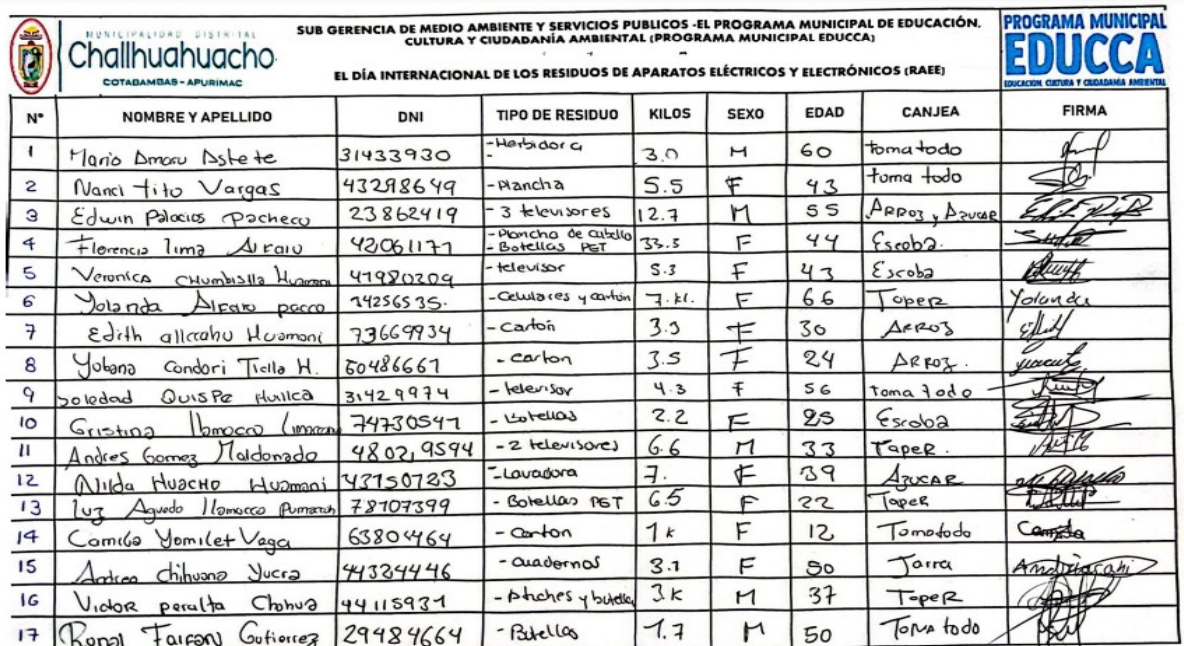 MUNICIPALIDAD DISTRITAL
Challhuahuacho
COTABAMBAS - APURIMAC
SUB GERENCIA DE MEDIO AMBIENTE Y SERVICIOS PUBLICOS -EL PROGRAMA MUNICIPAL DE EDUCACIÓN,
CULTURA Y CIUDADANÍA AMBIENTAL (PROGRAMA MUNICIPAL EDUCCA)
EL DÍA INTERNACIONAL DE LOS RESIDUOS DE APARATOS ELÉCTRICOS Y ELECTRÓNICOS (RAEE)
PROGRAMA MUNICIPAL
EDUCCA
EDUCACION, CULTURA Y CIUDADANÍA AMBIENTAL
N° NOMBRE Y APELLIDO DNI TIPO DE RESIDUO KILOS SEXO EDAD CANJEA FIRMA
1 Mario Amaru Astete 31433930 - Herbidora - 3.0 M 60 toma todo
2 Nanci tito Vargas 43298649 - Plancha 5.5 F 43 toma todo
3 Edwin Palacios Pacheco 23862419 - 3 televisores 12.7 M 55 ARROZ y AZUCAR
4 Florencia lima Alfaro 42061177 - Plancha de cabello - Botellas PET 33.3 F 44 Escoba.
5 Veronica CHumbislla Huamani 41980209 - televisor 5.3 F 43 Escoba
6 Yolanda Alfaro pacco 24256535. - Celulares y cartón 7. kl. F 66 Taper Yolanda
7 Edith allccahu Huamani 73669934 - Cartón 3.3 F 30 ARROZ
8 Yobana Condori Ticlla H. 60486661 - carton 3.5 F 24 ARROZ.
9 Soledad QUISPE Huillca 31429974 - televisor 4.3 F 56 toma todo
10 Cristina llamocca 74730541 - Botellas 2.2 F 25 Escoba
11 Andres Gomez Maldonado 48029594 - 2 televisores 6.6 M 33 TapeR.
12 Nilda HuacHo Huamani 43150723 - Lavadora 7. F 39 AZUCAR
13 Luz Aguedo llamocca 78107399 - Botellas PET 6.5 F 22 Taper
14 Camila Yomilet Vega 63804464 - Carton 1 k F 12 Tomatodo Camila
15 Andrea Chihuana Yucra 44324446 - cuadernos 3.1 F 50 Jarra
16 Victor peralta Chahua 44115931 - y botellas 3 k M 37 TapeR
17 Ronal Gutierrez 29484664 - Botellas 1.7 M 50 Toma todo